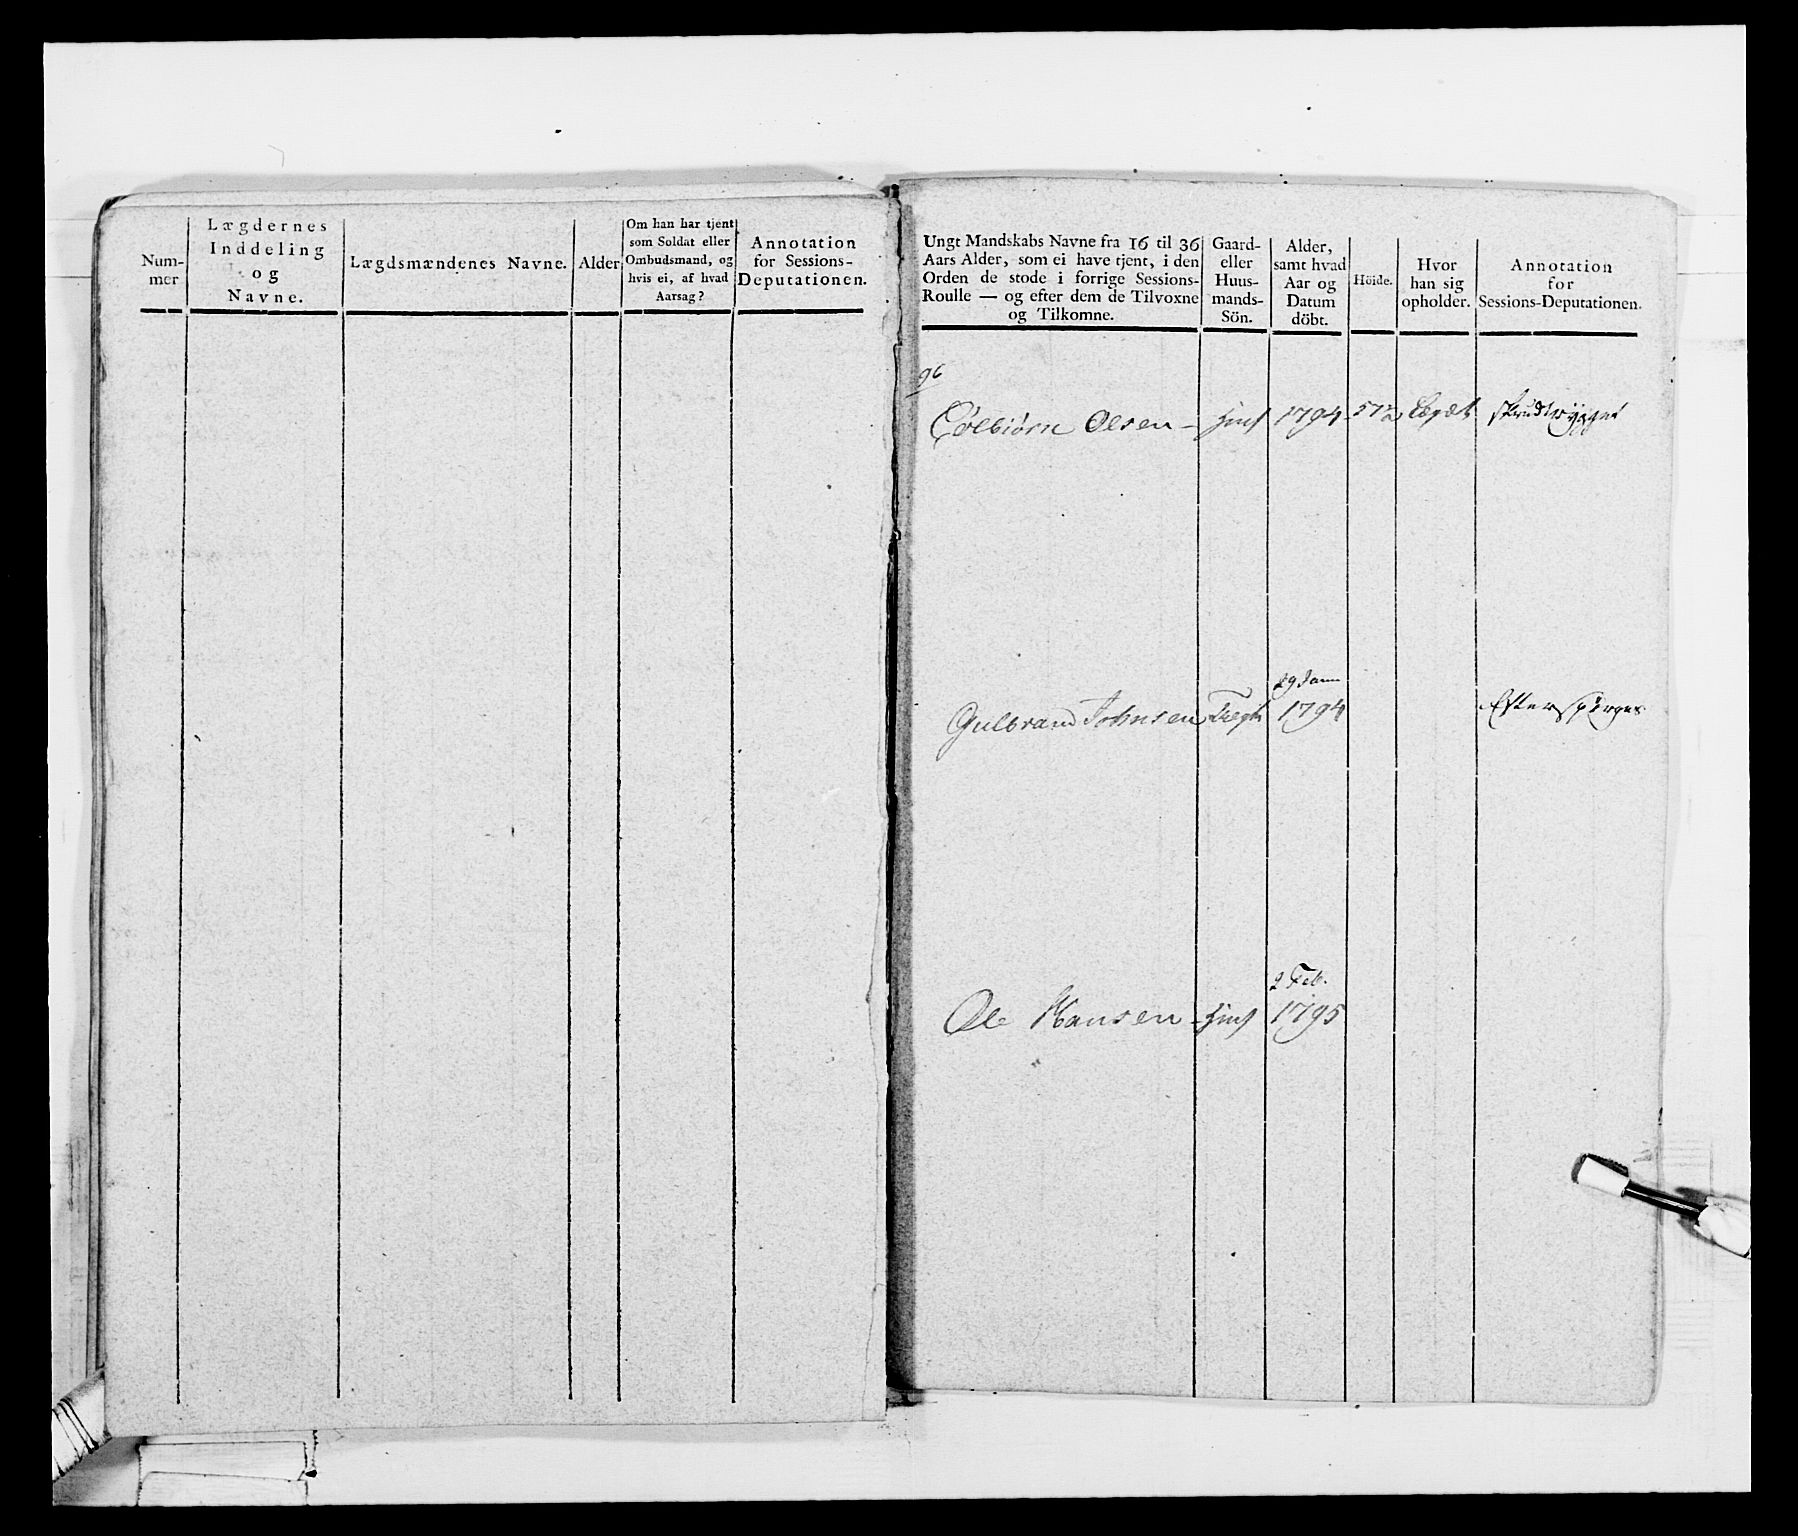 Num-
mer
Lægdernes
Inddeling
og
Navne.
Lægdsmændenes Navne.
Alder
Om han har tjent
som Soldat eller
Ombudsmand, og
hvis ei, af hvad
Aarsag?
Annotation
for Sessions-
Deputationen.
Ungt Mandskabs Navne fra 16 til 36
Aars Alder, som ei have tjent, i den
Orden de stode i forrige Sessions-
Roulle — og efter dem de Tilvoxne
og Tilkomne.
Gaard-
eller
Huus-
mands-
Sön.
Alder,
samt hvad
Aar og
Datum
döbt.
Höide.
Hvor
han sig
opholder.
Annotation
for
Sessions-Deputationen.
96
Colbiörn Olsen - 1794
29 Jann
Gulbrand Johnsen 1794 Efterspörges
2 Feb.
Ole Hansen - 1795